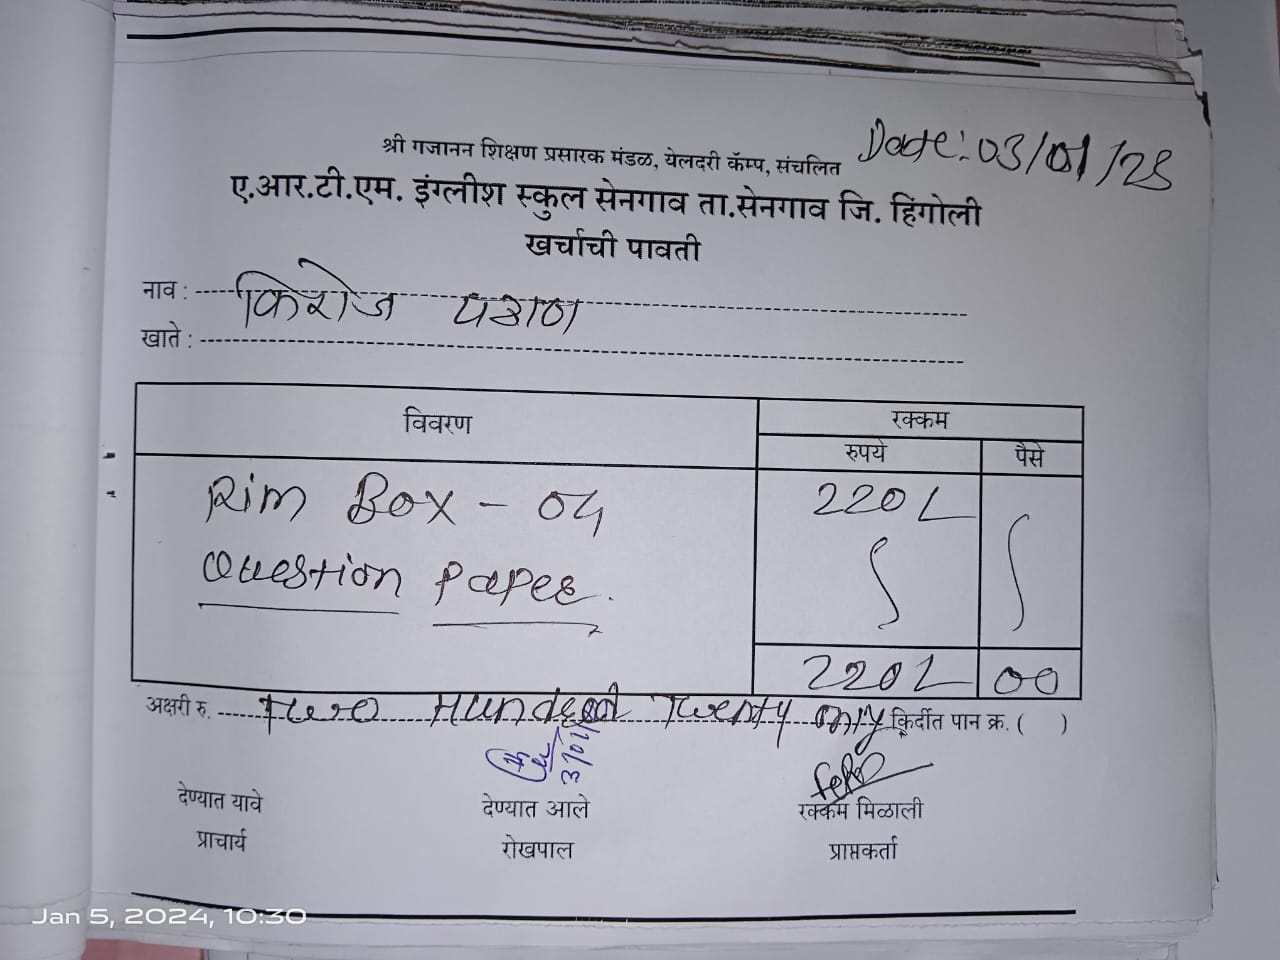 Date: 03/01/25
श्री गजानन शिक्षण प्रसारक मंडळ, येलदरी कॅम्प, संचलित
ए.आर.टी.एम. इंग्लीश स्कुल सेनगाव ता.सेनगाव जि. हिंगोली
खर्चाची पावती
नाव : फिरोज पठाण
खाते :
विवरण रक्कम
रुपये पैसे
Rim Box - 04 220/-
Question Paper.
220/- 00
अक्षरी रु. Two Hundred Twenty only किर्दीत पान क्र. ( )
देण्यात यावे देण्यात आले रक्कम मिळाली
प्राचार्य रोखपाल प्राप्तकर्ता
Jan 5, 2024, 10:30